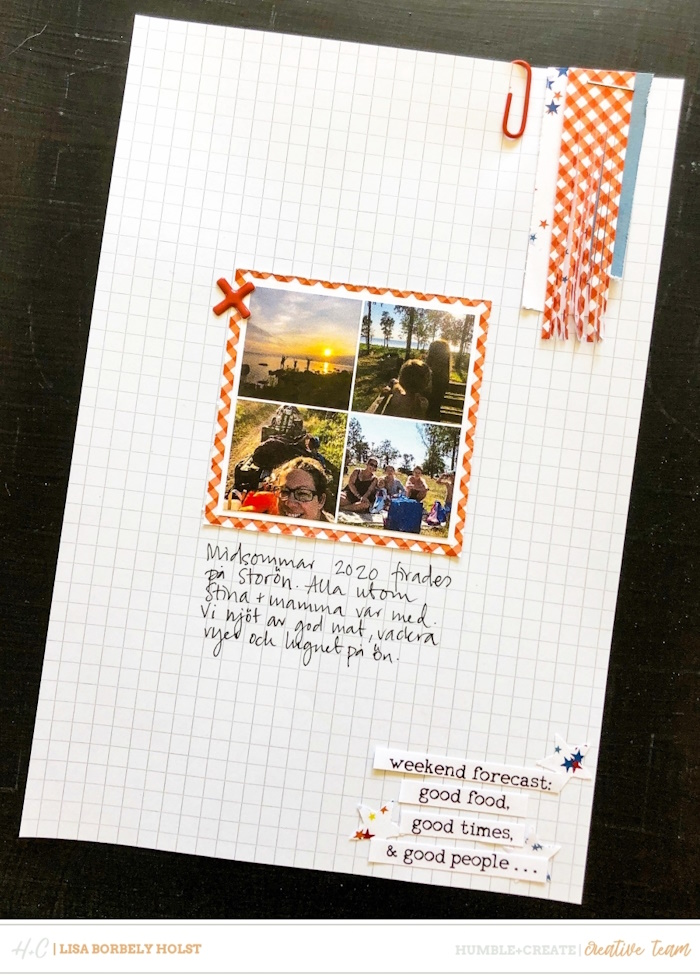 Midsommar 2020 firades
på Storön. Alla utom
Stina + mamma var med.
Vi njöt av god mat, vackra
vyer och lugnet på ön.
weekend forecast:
good food,
good times,
& good people ...
H+C | LISA BORBELY HOLST
HUMBLE+CREATE | Creative TEAM